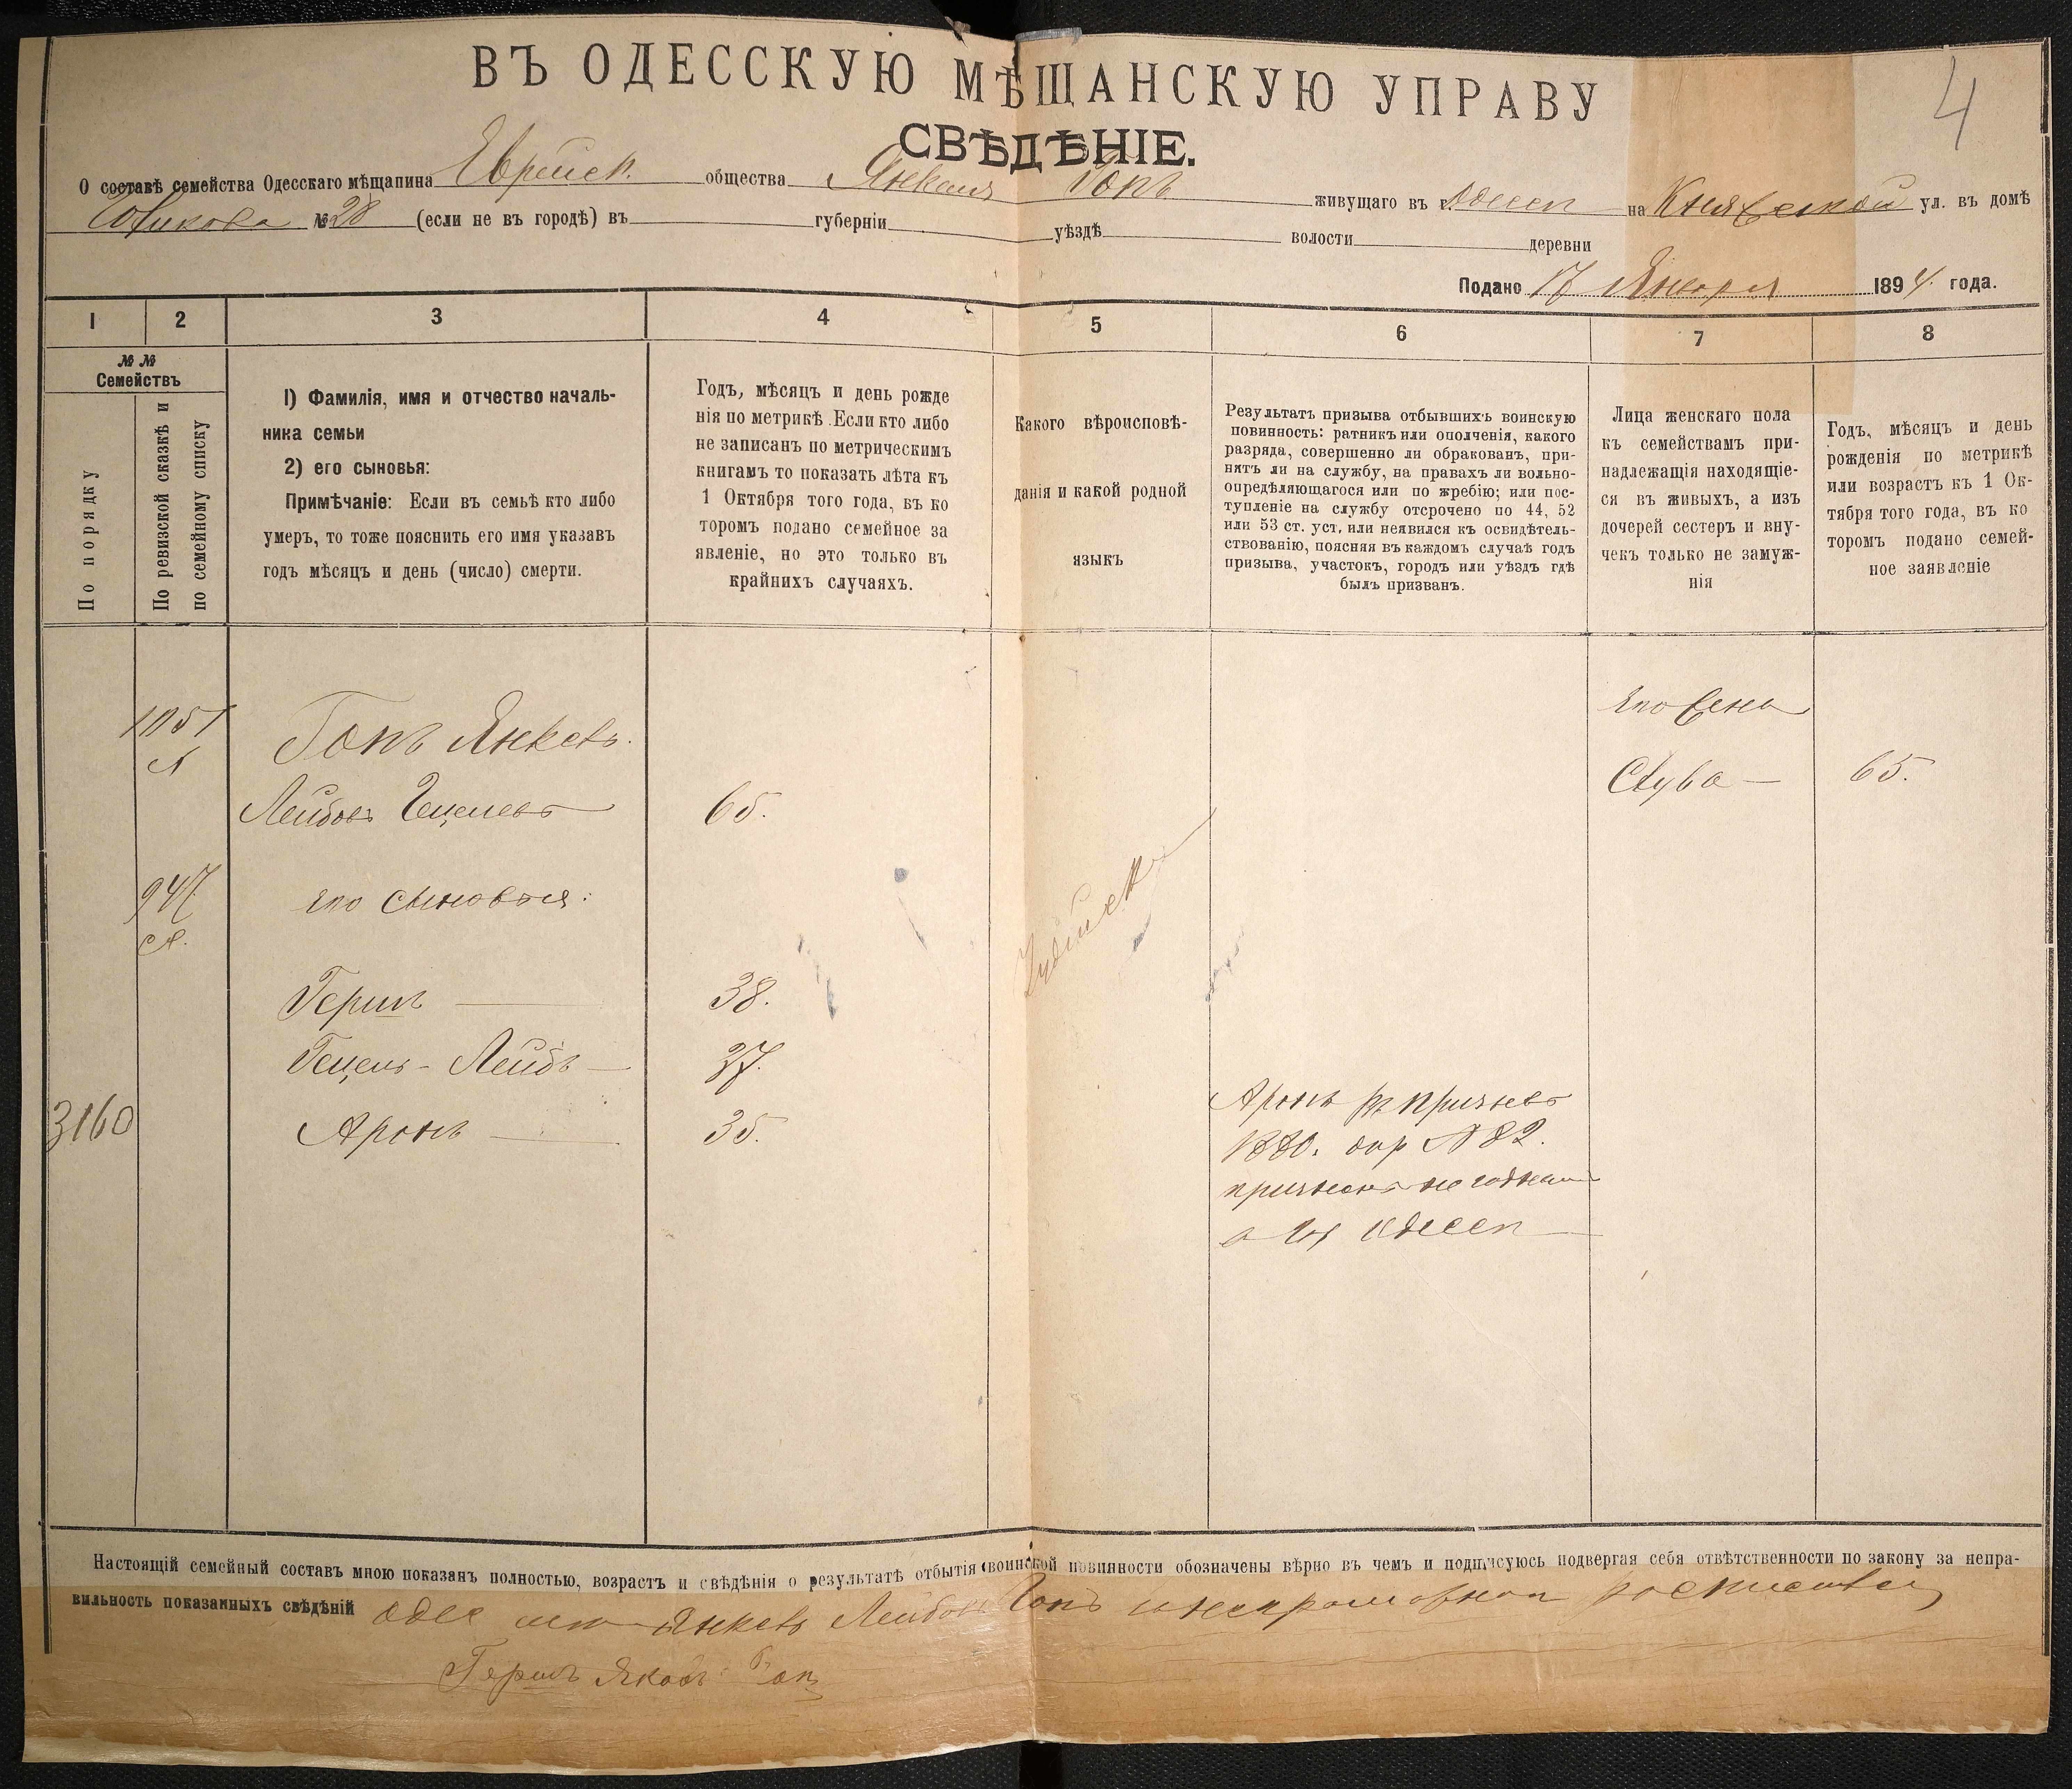 4
ВЪ ОДЕССКУЮ МѢЩАНСКУЮ УПРАВУ
СВѢДѢНІЕ.
О составѣ семейства Одесскаго мѣщанина Еврейск. общества Янкеля Гопъ живущаго въ г. Одессѣ на Княжеской ул. въ домѣ
Новикова № 28 (если не въ городѣ) въ губерніи уѣздѣ волости деревни
Подано 17 Января 1894 года.
1 2 3 4 5 6 7 8
№ №
Семействъ
По порядку
По ревизской сказкѣ и
по семейному списку
1) Фамилія, имя и отчество началь-
ника семьи
2) его сыновья:
Примѣчаніе: Если въ семьѣ кто либо
умеръ, то тоже пояснить его имя указавъ
годъ мѣсяцъ и день (число) смерти.
Годъ, мѣсяцъ и день рожде
нія по метрикѣ. Если кто либо
не записанъ по метрическимъ
книгамъ то показать лѣта къ
1 Октября того года, въ ко
торомъ подано семейное за
явленіе, но это только въ
крайнихъ случаяхъ.
Какого вѣроисповѣ-
данія и какой родной
языкъ
Результатъ призыва отбывшихъ воинскую
повинность: ратникъ или ополченія, какого
разряда, совершенно ли обракованъ, при-
нятъ ли на службу, на правахъ ли вольно-
опредѣляющагося или по жребію; или пос-
тупленіе на службу отсрочено по 44, 52
или 53 ст. уст. или неявился къ освидѣтель-
ствованію, поясняя въ каждомъ случаѣ годъ
призыва, участокъ, городъ или уѣздъ гдѣ
былъ призванъ.
Лица женскаго пола
къ семействамъ при-
надлежащія находящіе-
ся въ живыхъ, а изъ
дочерей сестеръ и вну-
чекъ только не замуж-
нія
Годъ, мѣсяцъ и день
рожденія по метрикѣ
или возрастъ къ 1 Ок-
тября того года, въ ко
торомъ подано семей-
ное заявленіе
его жена
Гопъ Янкель
Лейбовъ Гецелевъ 65.
65.
947
его сыновья:
Іудейск
Гершъ 38.
Гецель-Лейбъ 37.
3160
Аронъ 35.
Аронъ призыва
1880. № 82.
признанъ негоднымъ
Одессѣ
Настоящій семейный составъ мною показанъ полностью, возрастъ и свѣдѣнія о результатѣ отбытія воинской повинности обозначены вѣрно въ чемъ и подписуюсь подвергая себя отвѣтственности по закону за непра-
вильность показанныхъ свѣдѣній Одес Янкель Лейбовъ Гопъ
Гершъ Гопъ